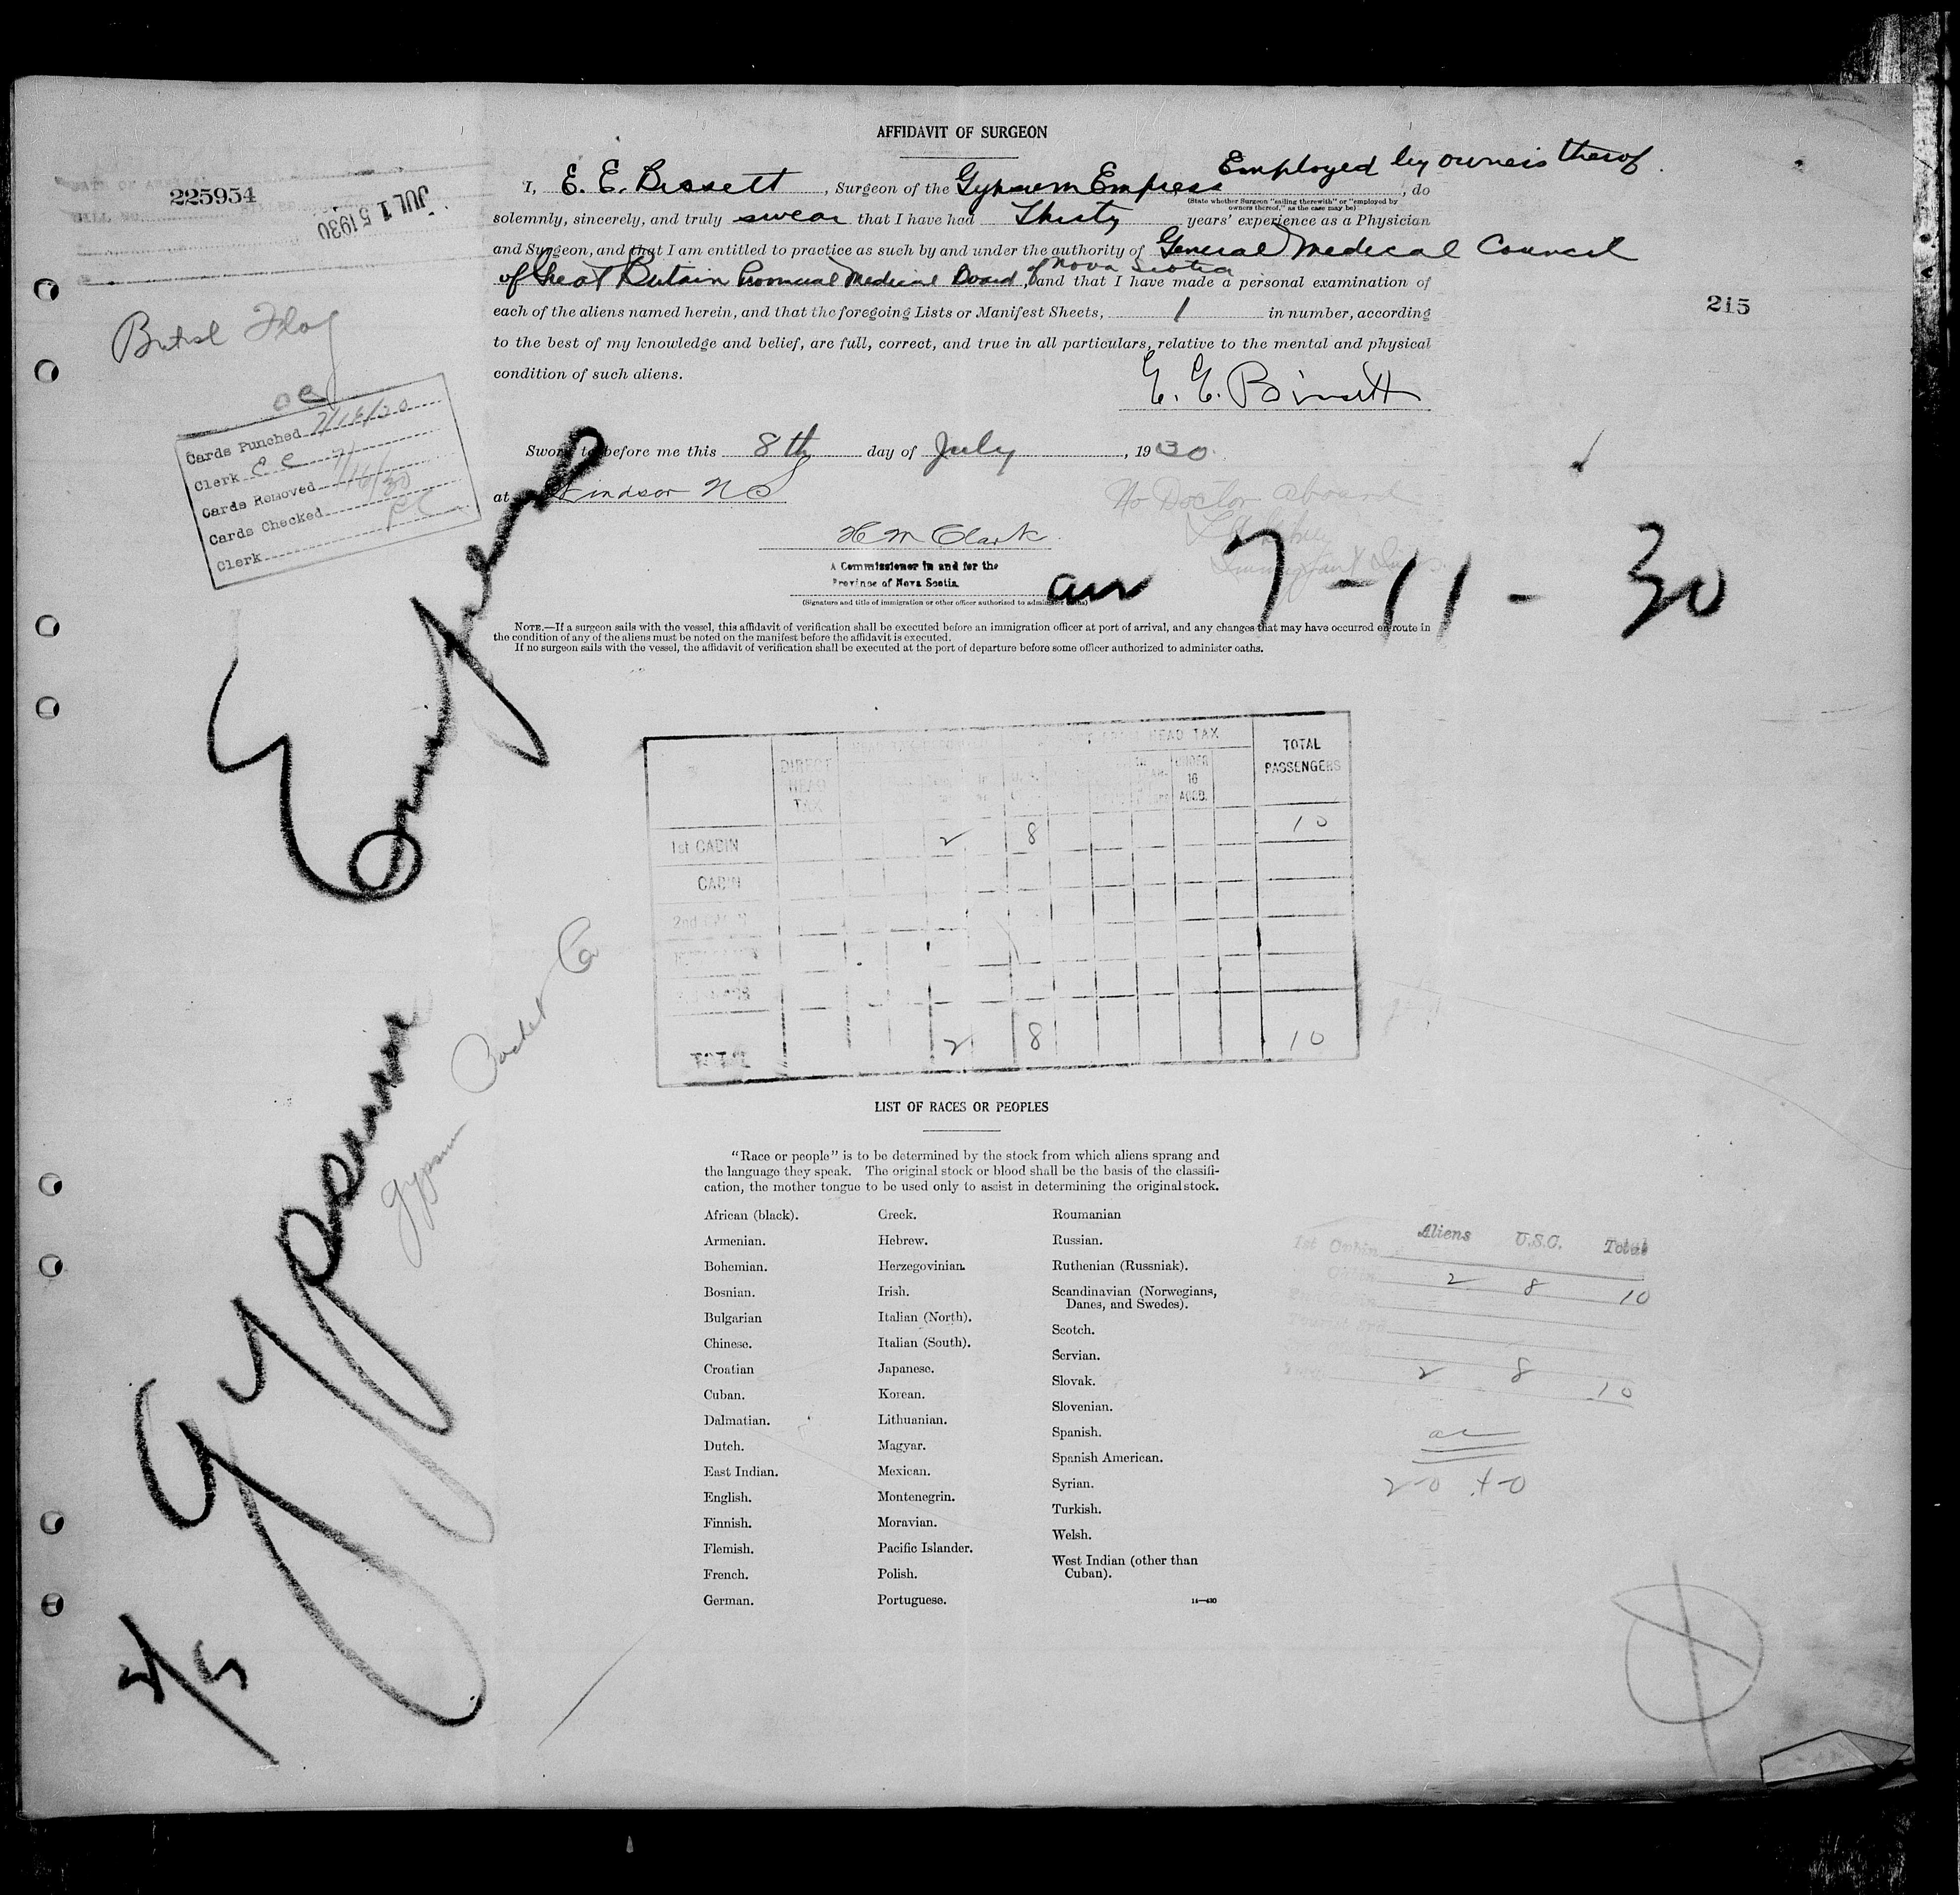 AFFIDAVIT OF SURGEON
225954
JUL 15 1930
I, E. E. Bissett, Surgeon of the Gypsum Empress Employed by owners therof, do
(State whether Surgeon "sailing therewith" or "employed by
owners thereof," as the case may be)
solemnly, sincerely, and truly swear that I have had Thirty years' experience as a Physician
and Surgeon, and that I am entitled to practice as such by and under the authority of General Medical Council
of Great Britain Provincial Medical Board of Nova Scotia, and that I have made a personal examination of
each of the aliens named herein, and that the foregoing Lists or Manifest Sheets, 1 in number, according
to the best of my knowledge and belief, are full, correct, and true in all particulars, relative to the mental and physical
condition of such aliens.
215
E. E. Bissett
British Flag
Cards Punched 7/16/30
Clerk
Cards Removed 7/16/30
Cards Checked
Clerk
Sworn to before me this 8th day of July, 1930
at Windsor NS
No Doctor aboard
H M Clark
A Commissioner in and for the
Province of Nova Scotia.
(Signature and title of immigration or other officer authorized to administer oaths)
arr 7-11-30
NOTE.—If a surgeon sails with the vessel, this affidavit of verification shall be executed before an immigration officer at port of arrival, and any changes that may have occurred en route in
the condition of any of the aliens must be noted on the manifest before the affidavit is executed.
If no surgeon sails with the vessel, the affidavit of verification shall be executed at the port of departure before some officer authorized to administer oaths.
S/S Gypsum Empress
Gypsum Packet Co
DIRECT HEAD TAX
HEAD TAX
UNDER 16 ACCD.
TOTAL PASSENGERS
1st CABIN 2 8 10
CABIN
2nd CABIN
TOTAL 2 8 10
LIST OF RACES OR PEOPLES
"Race or people" is to be determined by the stock from which aliens sprang and
the language they speak. The original stock or blood shall be the basis of the classifi-
cation, the mother tongue to be used only to assist in determining the original stock.
African (black).
Armenian.
Bohemian.
Bosnian.
Bulgarian
Chinese.
Croatian
Cuban.
Dalmatian.
Dutch.
East Indian.
English.
Finnish.
Flemish.
French.
German.
Greek.
Hebrew.
Herzegovinian.
Irish.
Italian (North).
Italian (South).
Japanese.
Korean.
Lithuanian.
Magyar.
Mexican.
Montenegrin.
Moravian.
Pacific Islander.
Polish.
Portuguese.
Roumanian
Russian.
Ruthenian (Russniak).
Scandinavian (Norwegians,
Danes, and Swedes).
Scotch.
Servian.
Slovak.
Slovenian.
Spanish.
Spanish American.
Syrian.
Turkish.
Welsh.
West Indian (other than
Cuban).
14—430
Aliens U.S.C. Total
1st Cabin
Cabin 2 8 10
2 8 10